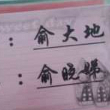 ：俞大地
：俞晓群